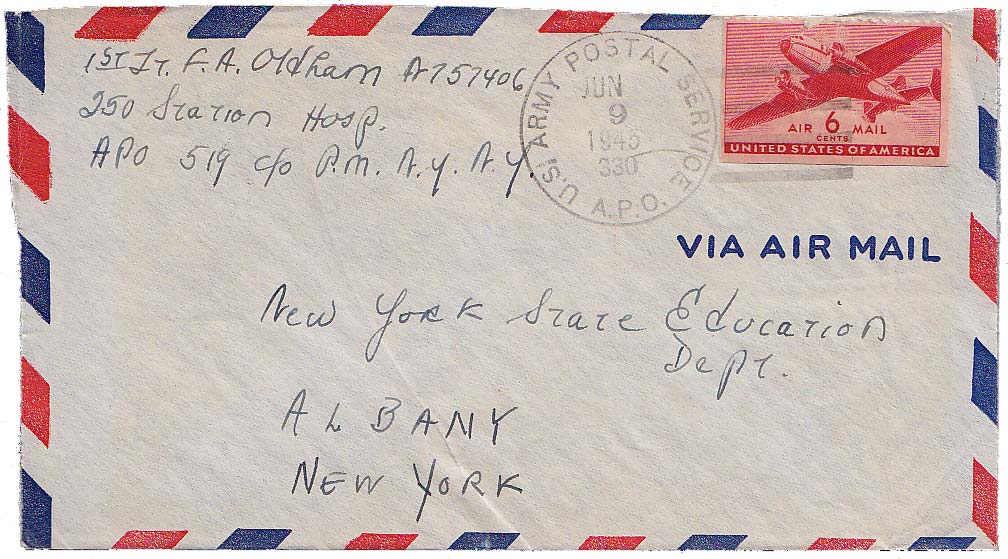 1ST Lt. F. A. Oldham A757406
250 Station Hosp.
APO 519 c/o P.M. N.Y. N.Y.
U.S. ARMY POSTAL SERVICE
JUN
9
1945
330
A.P.O.
AIR 6 MAIL
CENTS
UNITED STATES OF AMERICA
VIA AIR MAIL
New York State Education
Dept.
ALBANY
NEW YORK